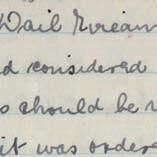 Dail Eireann
d considered
s should be
it was ordere